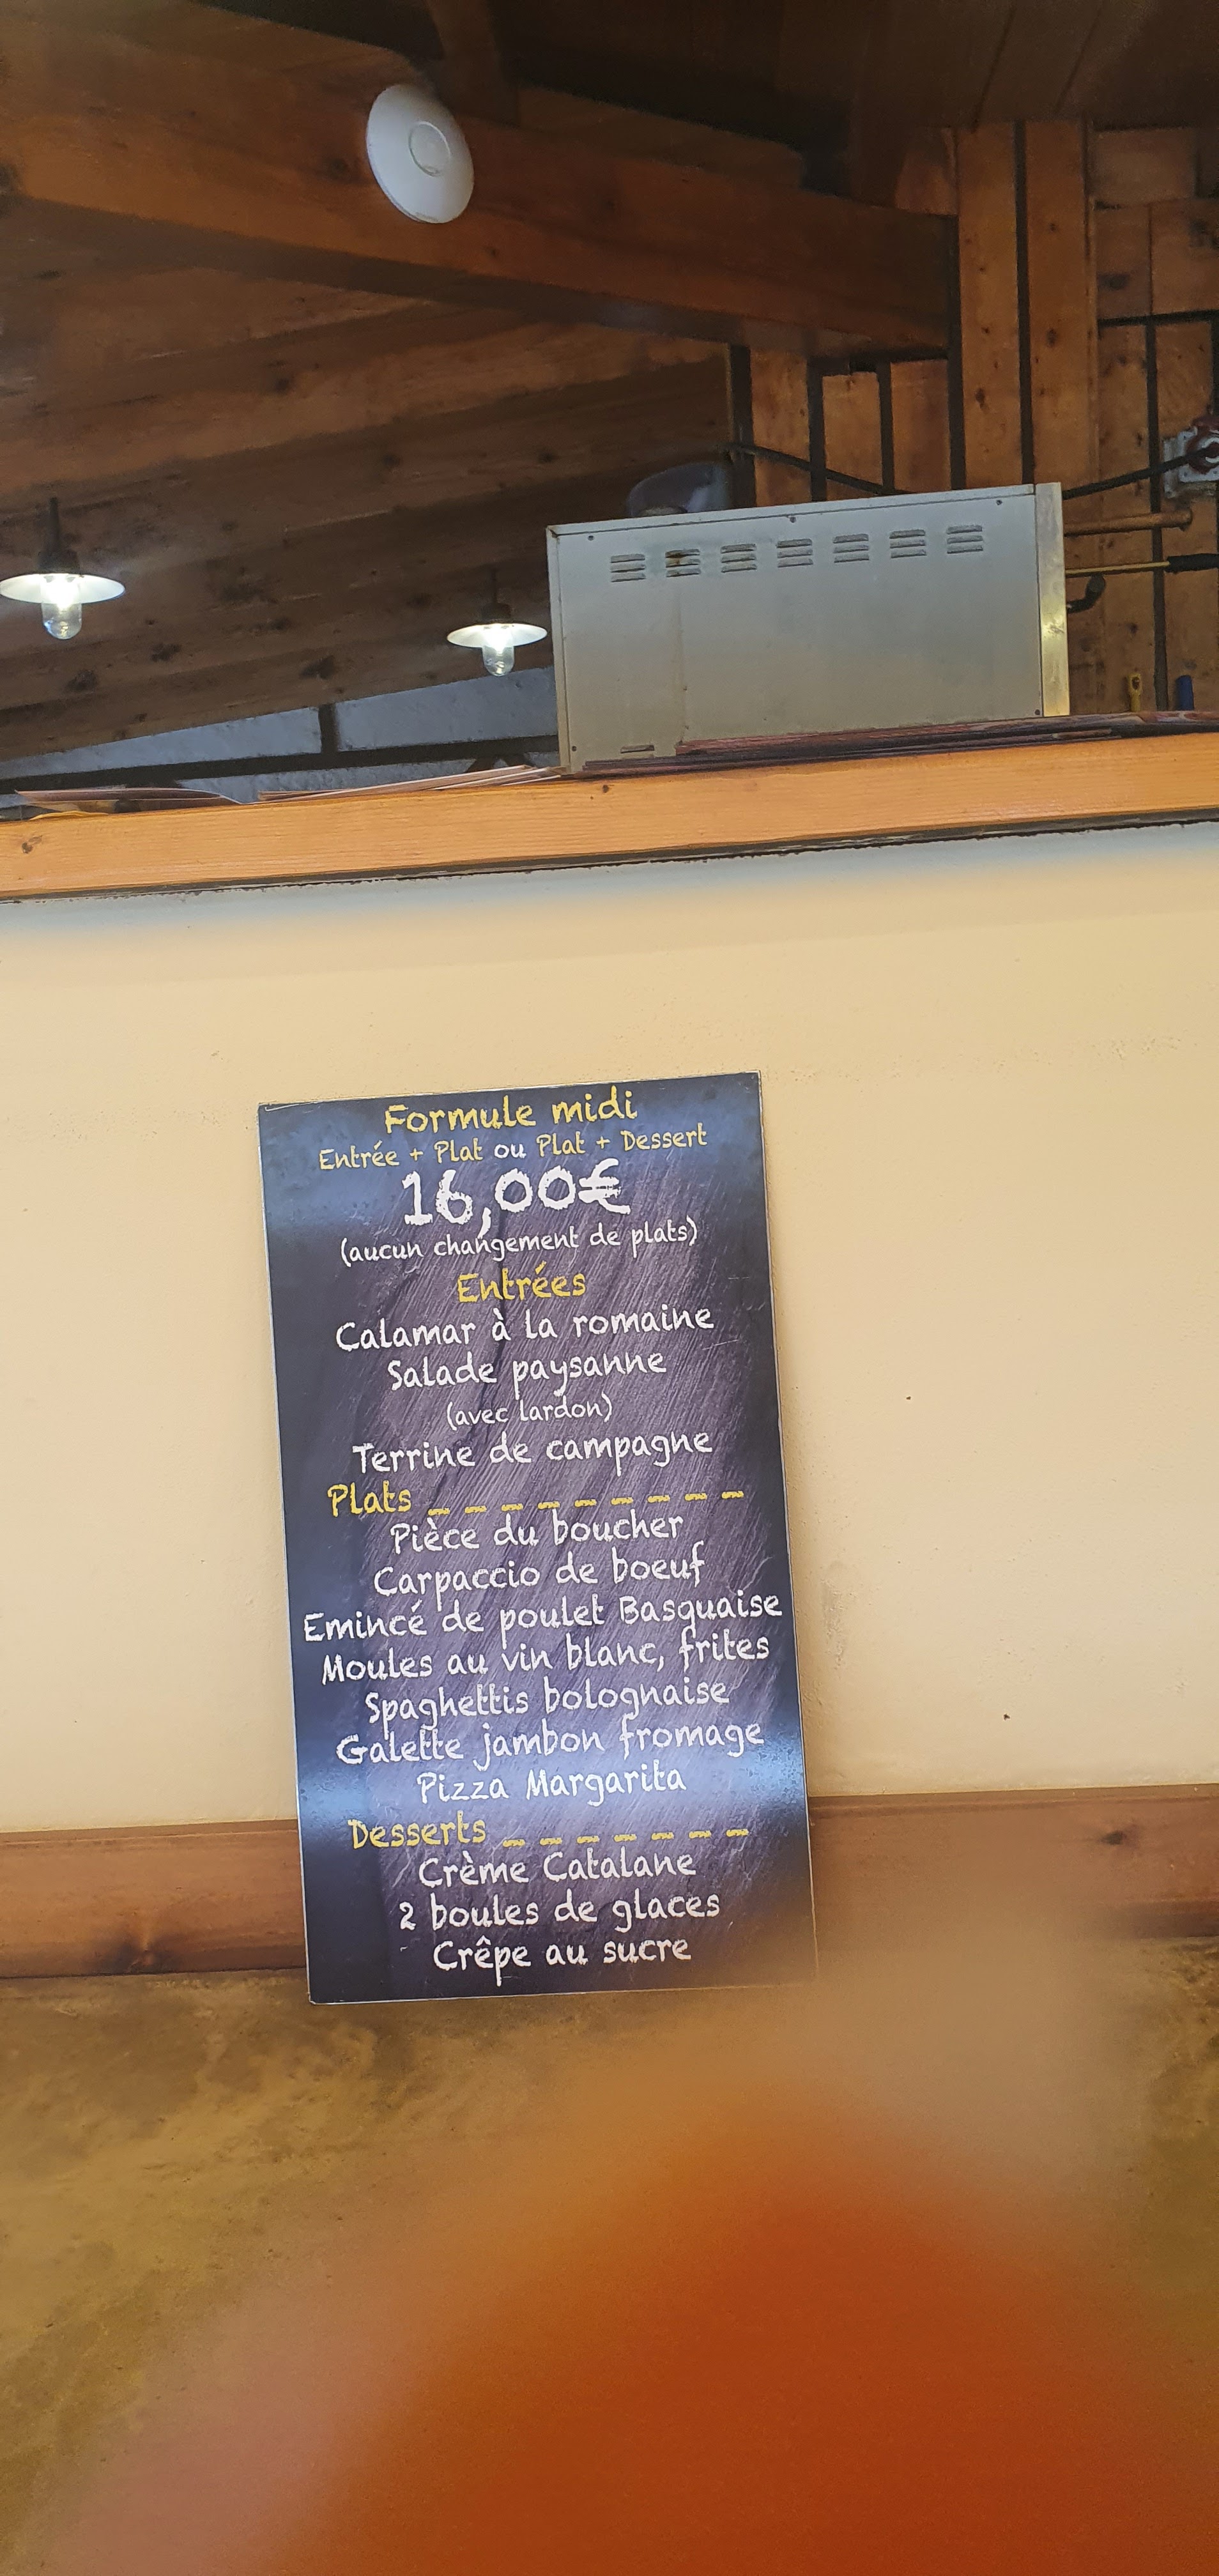 Formule midi
Entrée + Plat ou Plat + Dessert
16,00€
(aucun changement de plats)
Entrées
Calamar à la romaine
Salade paysanne
(avec lardon)
Terrine de campagne
Plats _ _ _ _ _ _ _ _ _
Pièce du boucher
Carpaccio de boeuf
Emincé de poulet Basquaise
Moules au vin blanc, frites
Spaghettis bolognaise
Galette jambon fromage
Pizza Margarita
Desserts _ _ _ _ _ _ _
Crème Catalane
2 boules de glaces
Crêpe au sucre